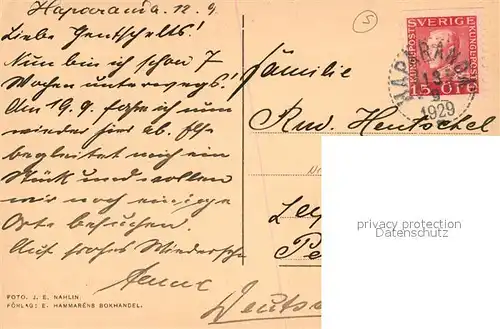 Haparanda. 12. 9
Liebe Hentschells!
Nun bin ich schon 7
Wochen unterwegs!
Am 19. 9. fahre ich nun
wieder hier ab.
begleitet mich ein
Stück und wollen
wir noch einige
Orte besuchen.
Auf frohes Wiedersehn
Familie
Rud. Hentschel
Deutsc
SVERIGE
15 ÖRE
HAPARANDA
13
9
1929
5
privacy protection
Datenschutz
FOTO. J. E. NAHLIN.
FÖRLAG: E. HAMMARÉNS BOKHANDEL.